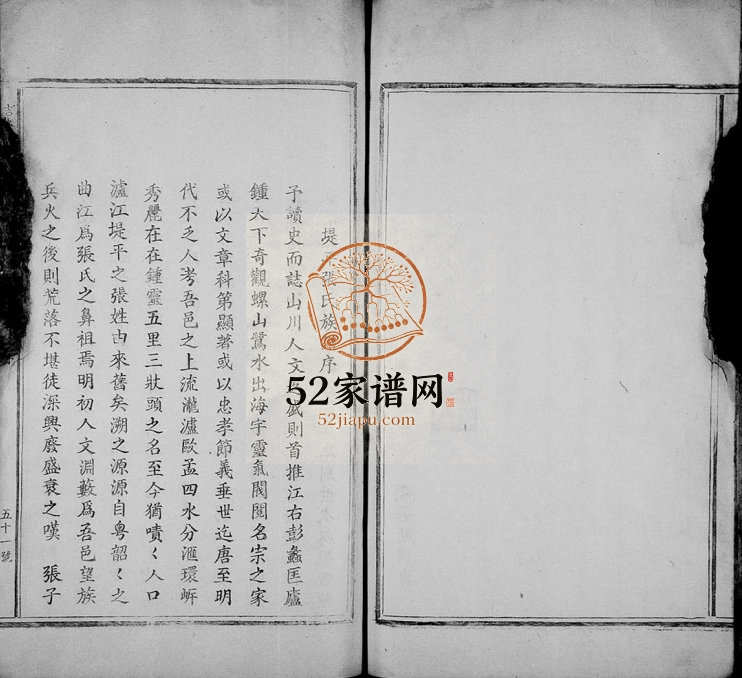 堤 張氏族 序
子讀史而誌山川人文 盛則首推江右彭蠡匡廬
鍾天下奇觀螺山鷺水出海宇靈氣閥閱名宗之家
或以文章科第顯著或以忠孝節義垂世迄唐至明
代不乏人考吾邑之上流瀧瀘歐孟四水分滙環㟁
秀麗在在鍾靈五里三狀頭之名至今猶嘖〱人口
瀘江堤平之張姓由來舊矣溯之源源自粵韶〱之
曲江爲張氏之鼻祖焉明初人文淵藪爲吾邑望族
兵火之後則荒落不堪徒深興廢盛衰之嘆 張子
五十一號
52家谱网
52jiapu.com